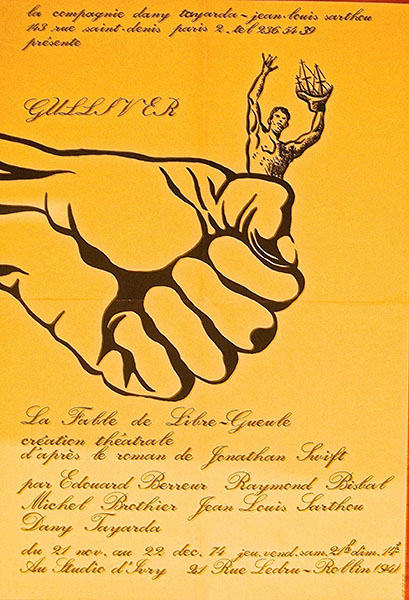 la compagnie dany tayarda - jean-louis sarthou
143 rue saint-denis paris 2. tel 236 54 39
présente
GULLIVER
La Fable de Libre-Gueule
création théatrale
d'après le roman de Jonathan Swift
par Edouard Berreur Raymond Bisbal
Michel Brothier Jean Louis Sarthou
Dany Tayarda
du 21 nov. au 22 dec. 74 jeu. vend. sam. 21h dim. 17h
Au Studio d'Ivry 21 Rue Ledru-Rollin (94)